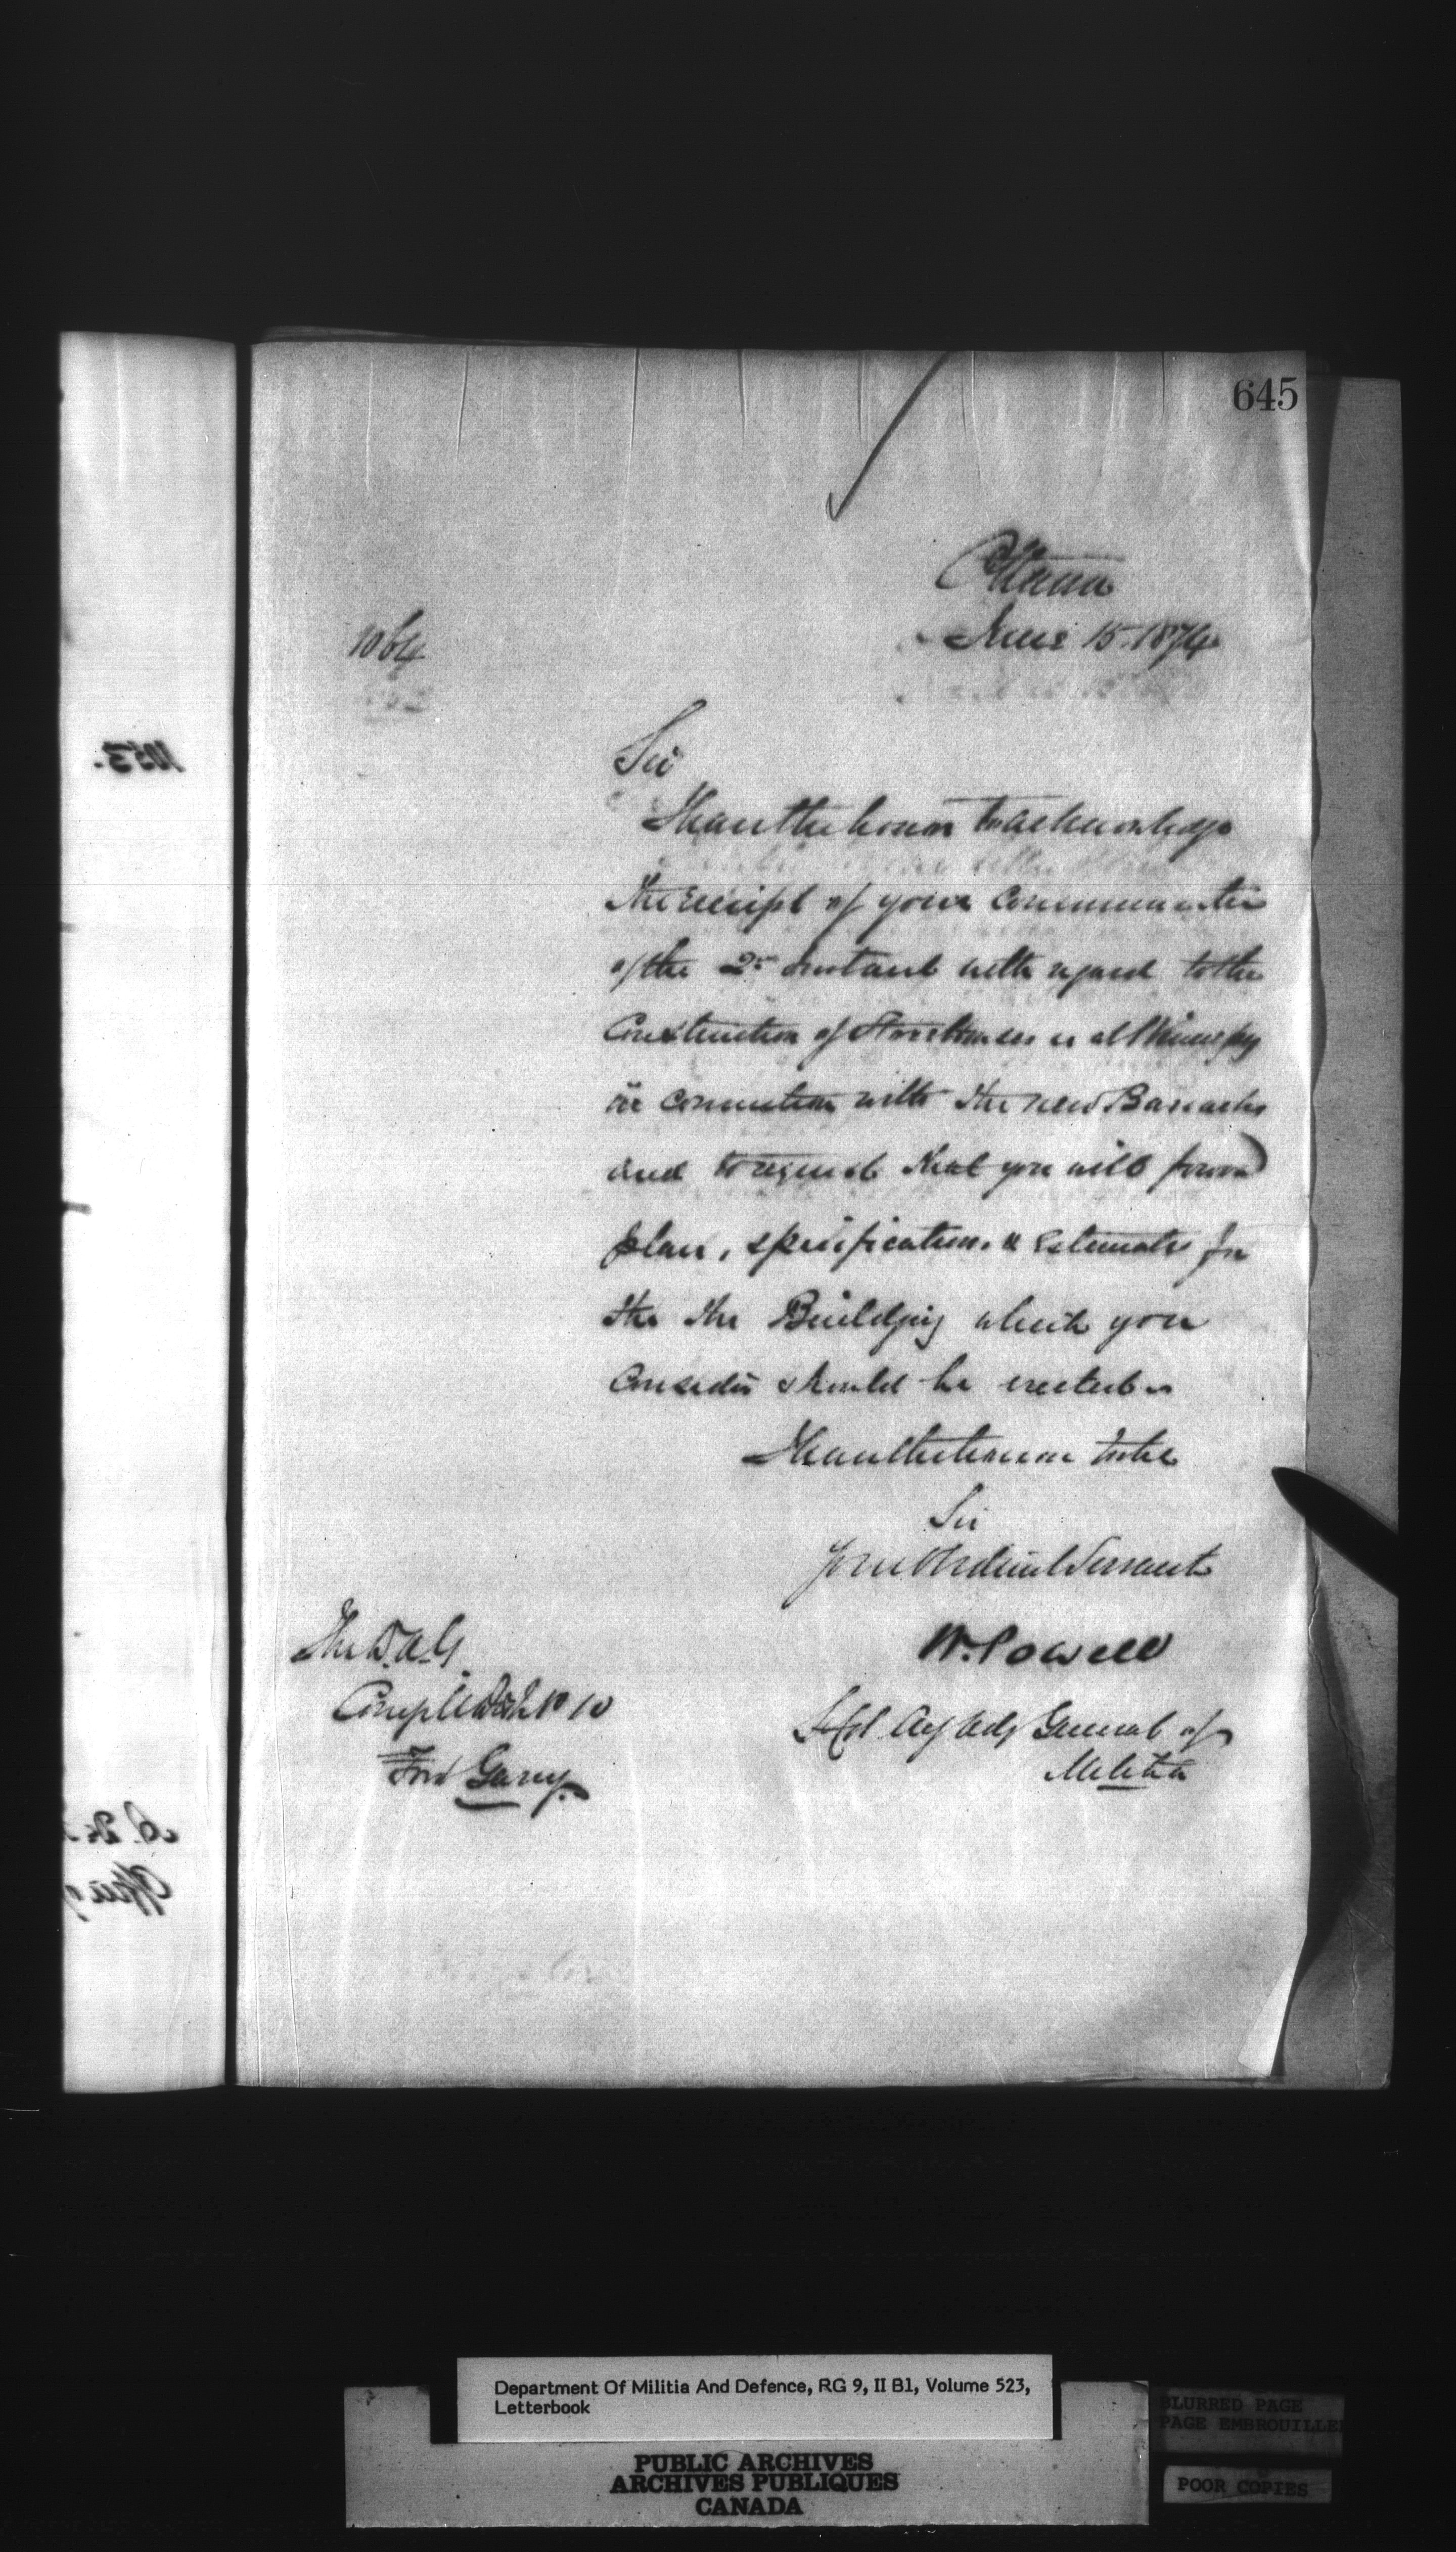 645
Ottawa
June 15. 1874
1064
Sir
I have the honor to acknowledge
the receipt of your communication
of the 2nd instant with regard to the
Construction of Storehouses at Winnipeg
in connection with the new Barracks
and to request that you will forward
plan, specification, & Estimates for
the the Building which you
Consider should be erected
I have the honor to be
Sir
Your Obedient Servant
W. Powell
L Col. Actg Adj General of
Militia
The D. A. G
Comg Mil Dist No 10
Fort Garry
1053.
Department Of Militia And Defence, RG 9, II B1, Volume 523,
Letterbook
PUBLIC ARCHIVES
ARCHIVES PUBLIQUES
CANADA
BLURRED PAGE
PAGE EMBROUILLEE
POOR COPIES